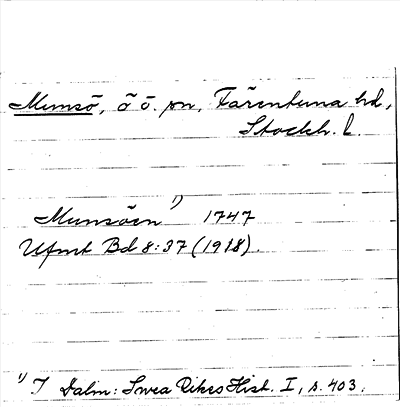 Munsö, ö o. sn, Färentuna hd,
Stockh. l.
Munsöen ¹) 1747
Ufmt Bd 8:37 (1918).
¹) I Dalin: Svea Rikes Hist. I, s. 403.